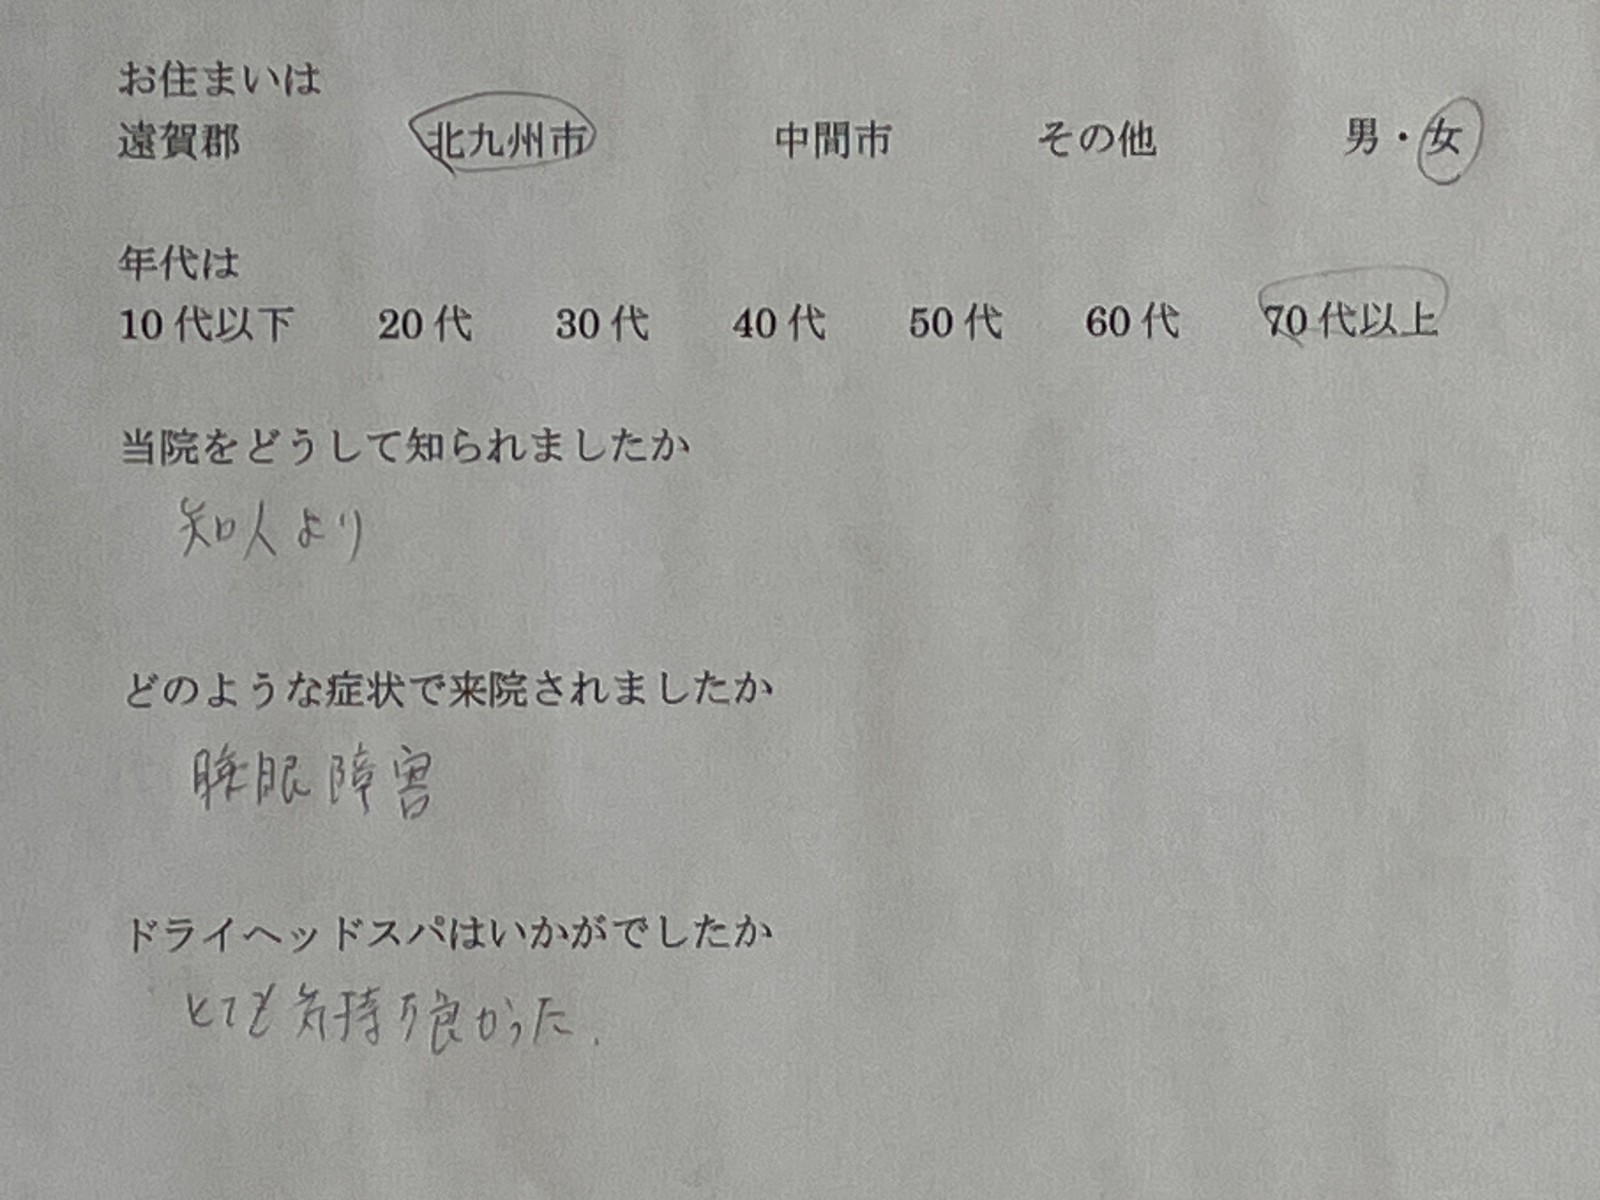 お住まいは
遠賀郡 北九州市 中間市 その他 男・女
年代は
10代以下 20代 30代 40代 50代 60代 70代以上
当院をどうして知られましたか
知人より
どのような症状で来院されましたか
睡眠障害
ドライヘッドスパはいかがでしたか
とても気持ち良かった.